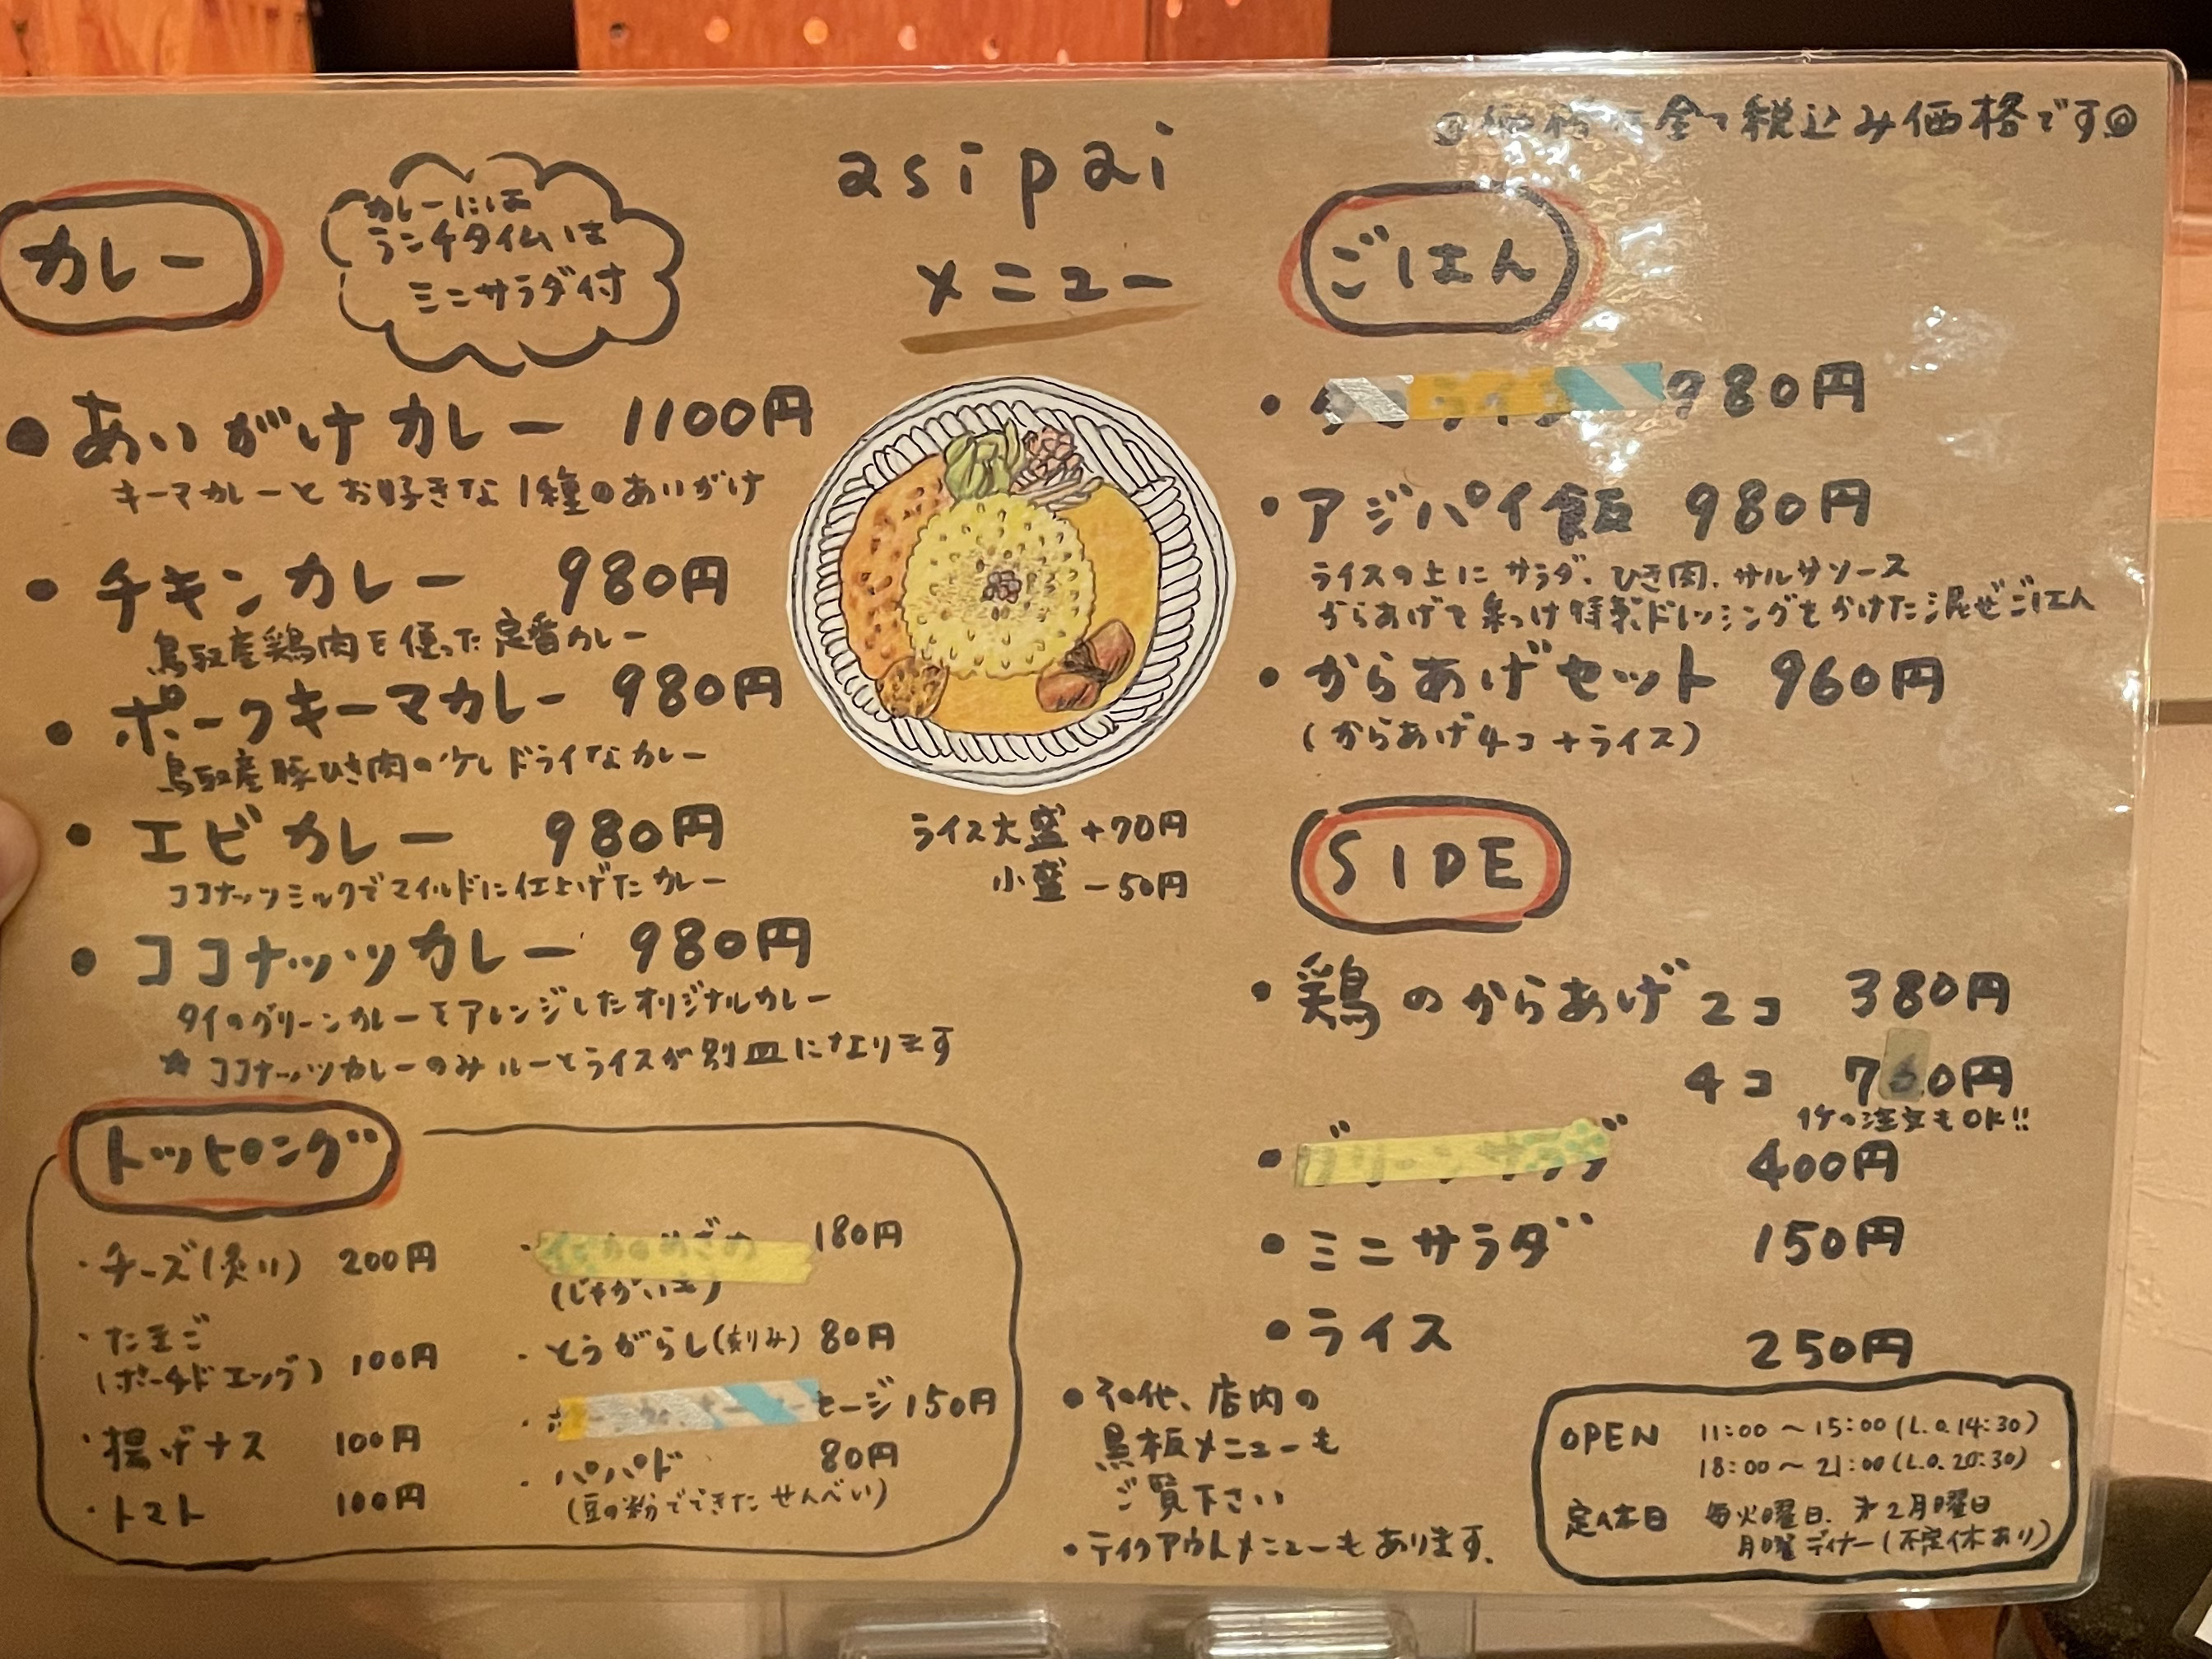 ◎価格は全て税込み価格です◎
asipai
メニュー
カレー
カレーには
ランチタイムは
ミニサラダ付
● あいがけカレー 1100円
キーマカレーとお好きな1種のあいがけ
・チキンカレー 980円
鳥取産鶏肉を使った定番カレー
・ポークキーマカレー 980円
鳥取産豚ひき肉の少しドライなカレー
・エビカレー 980円
ココナッツミルクでマイルドに仕上げたカレー
・ココナッツカレー 980円
タイのグリーンカレーをアレンジしたオリジナルカレー
★ココナッツカレーのみルーとライスが別皿になります
ライス大盛 +70円
小盛 -50円
トッピング
・チーズ(炙り) 200円
・たまご
(ボイルドエッグ) 100円
・揚げナス 100円
・トマト 100円
・ 180円
(じゃがいも)
・とうがらし(刻み) 80円
・ セージ 150円
・パパド 80円
(豆の粉でできたせんべい)
ごはん
・ 980円
・アジパイ飯 980円
ライスの上にサラダ、ひき肉、サルサソース
からあげを乗っけ特製ドレッシングをかけた混ぜごはん
・からあげセット 960円
(からあげ4コ+ライス)
SIDE
・鶏のからあげ 2コ 380円
4コ 760円
1ケの注文もOK!!
・グリーンサラダ 400円
・ミニサラダ 150円
・ライス 250円
・その他、店内の
黒板メニューも
ご覧下さい
・テイクアウトメニューもあります。
OPEN 11:00～15:00(L.O.14:30)
18:00～21:00(L.O.20:30)
定休日 毎火曜日、第2月曜日
月曜ディナー(不定休あり)